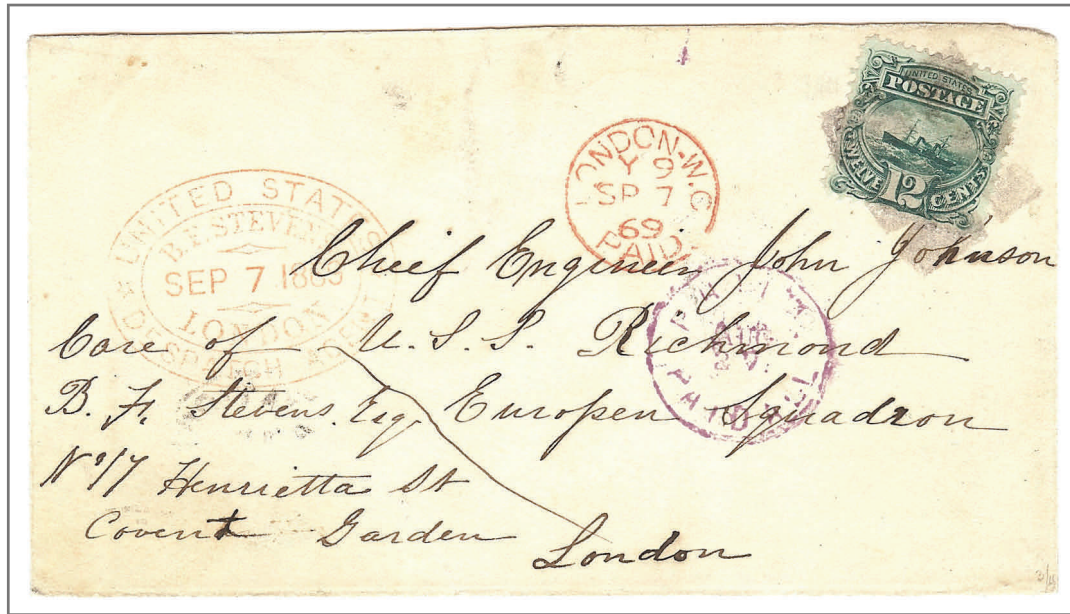 UNITED STATES
POSTAGE
TWELVE 12 CENTS
LONDON-W.C
Y 9
SP 7
69
PAID
UNITED STATES
B.F. STEVENS
SEP 7 1869
LONDON
DESPATCH AGENT
Chief Engineer John Johnson
Care of U.S.S. Richmond
B. F. Stevens Esq. Europen Squadron
No 17 Henrietta St
Covent Garden
London
PAID ALL